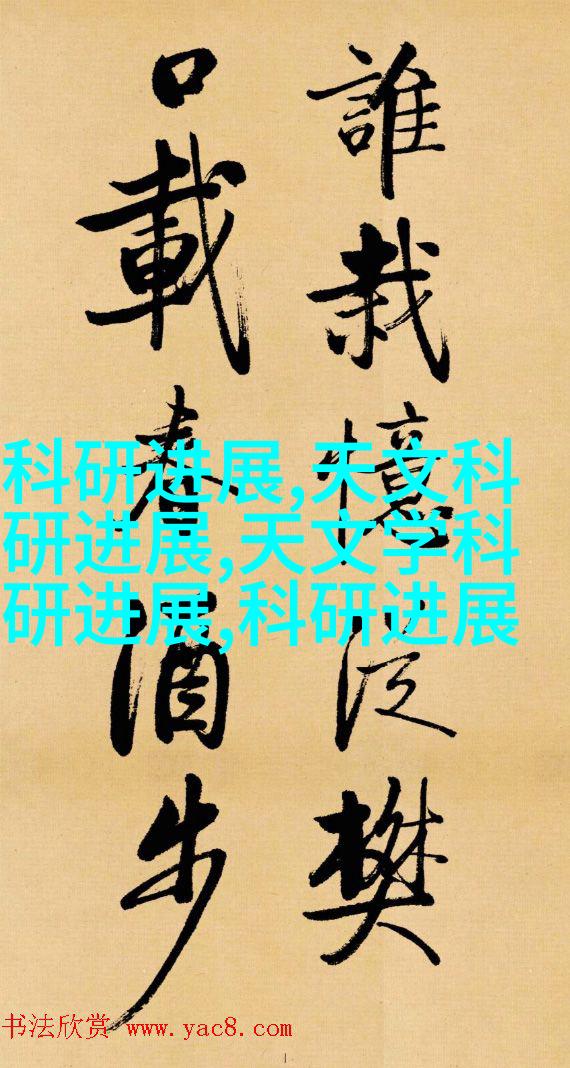 誰栽憶泛樊
口載春酒步
科研进展,天文科
研进展,天文学科
研进展,科研进展
书法欣赏 www.yac8.com